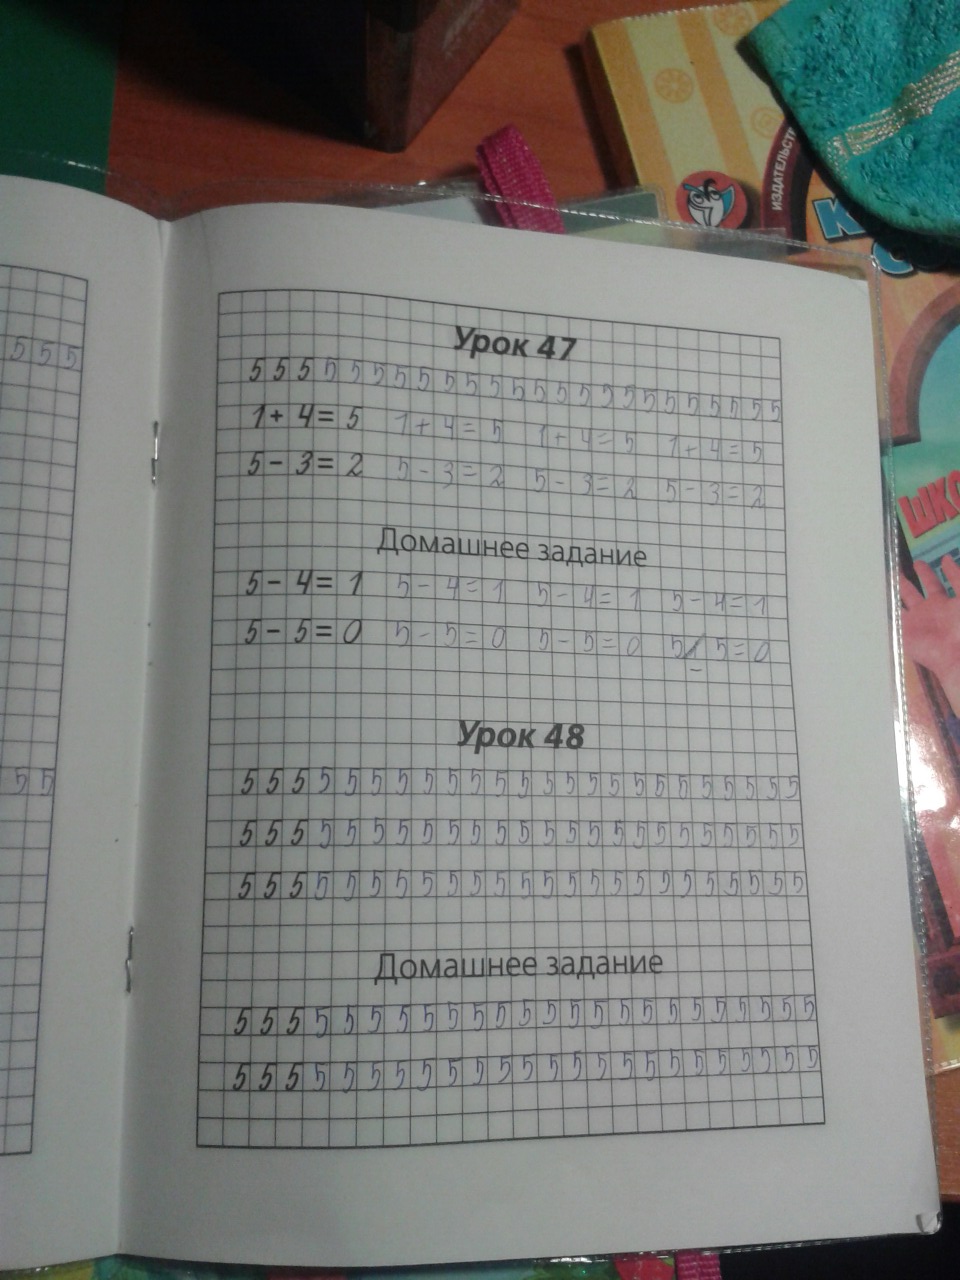 5 5 5
5 5
Урок 47
5 5 5 5 5 5 5 5 5 5 5 5 5 5 5 5 5 5 5 5 5 5 5
1 + 4 = 5 1 + 4 = 5 1 + 4 = 5 1 + 4 = 5
5 - 3 = 2 5 - 3 = 2 5 - 3 = 2 5 - 3 = 2
Домашнее задание
5 - 4 = 1 5 - 4 = 1 5 - 4 = 1 5 - 4 = 1
5 - 5 = 0 5 - 5 = 0 5 - 5 = 0 5 - 5 = 0
Урок 48
5 5 5 5 5 5 5 5 5 5 5 5 5 5 5 5 5 5 5 5 5 5 5
5 5 5 5 5 5 5 5 5 5 5 5 5 5 5 5 5 5 5 5 5 5 5
5 5 5 5 5 5 5 5 5 5 5 5 5 5 5 5 5 5 5 5 5 5 5
Домашнее задание
5 5 5 5 5 5 5 5 5 5 5 5 5 5 5 5 5 5 5 5 5 5 5 5
5 5 5 5 5 5 5 5 5 5 5 5 5 5 5 5 5 5 5 5 5 5 5 5
ИЗДАТЕЛЬСТ
ШКО